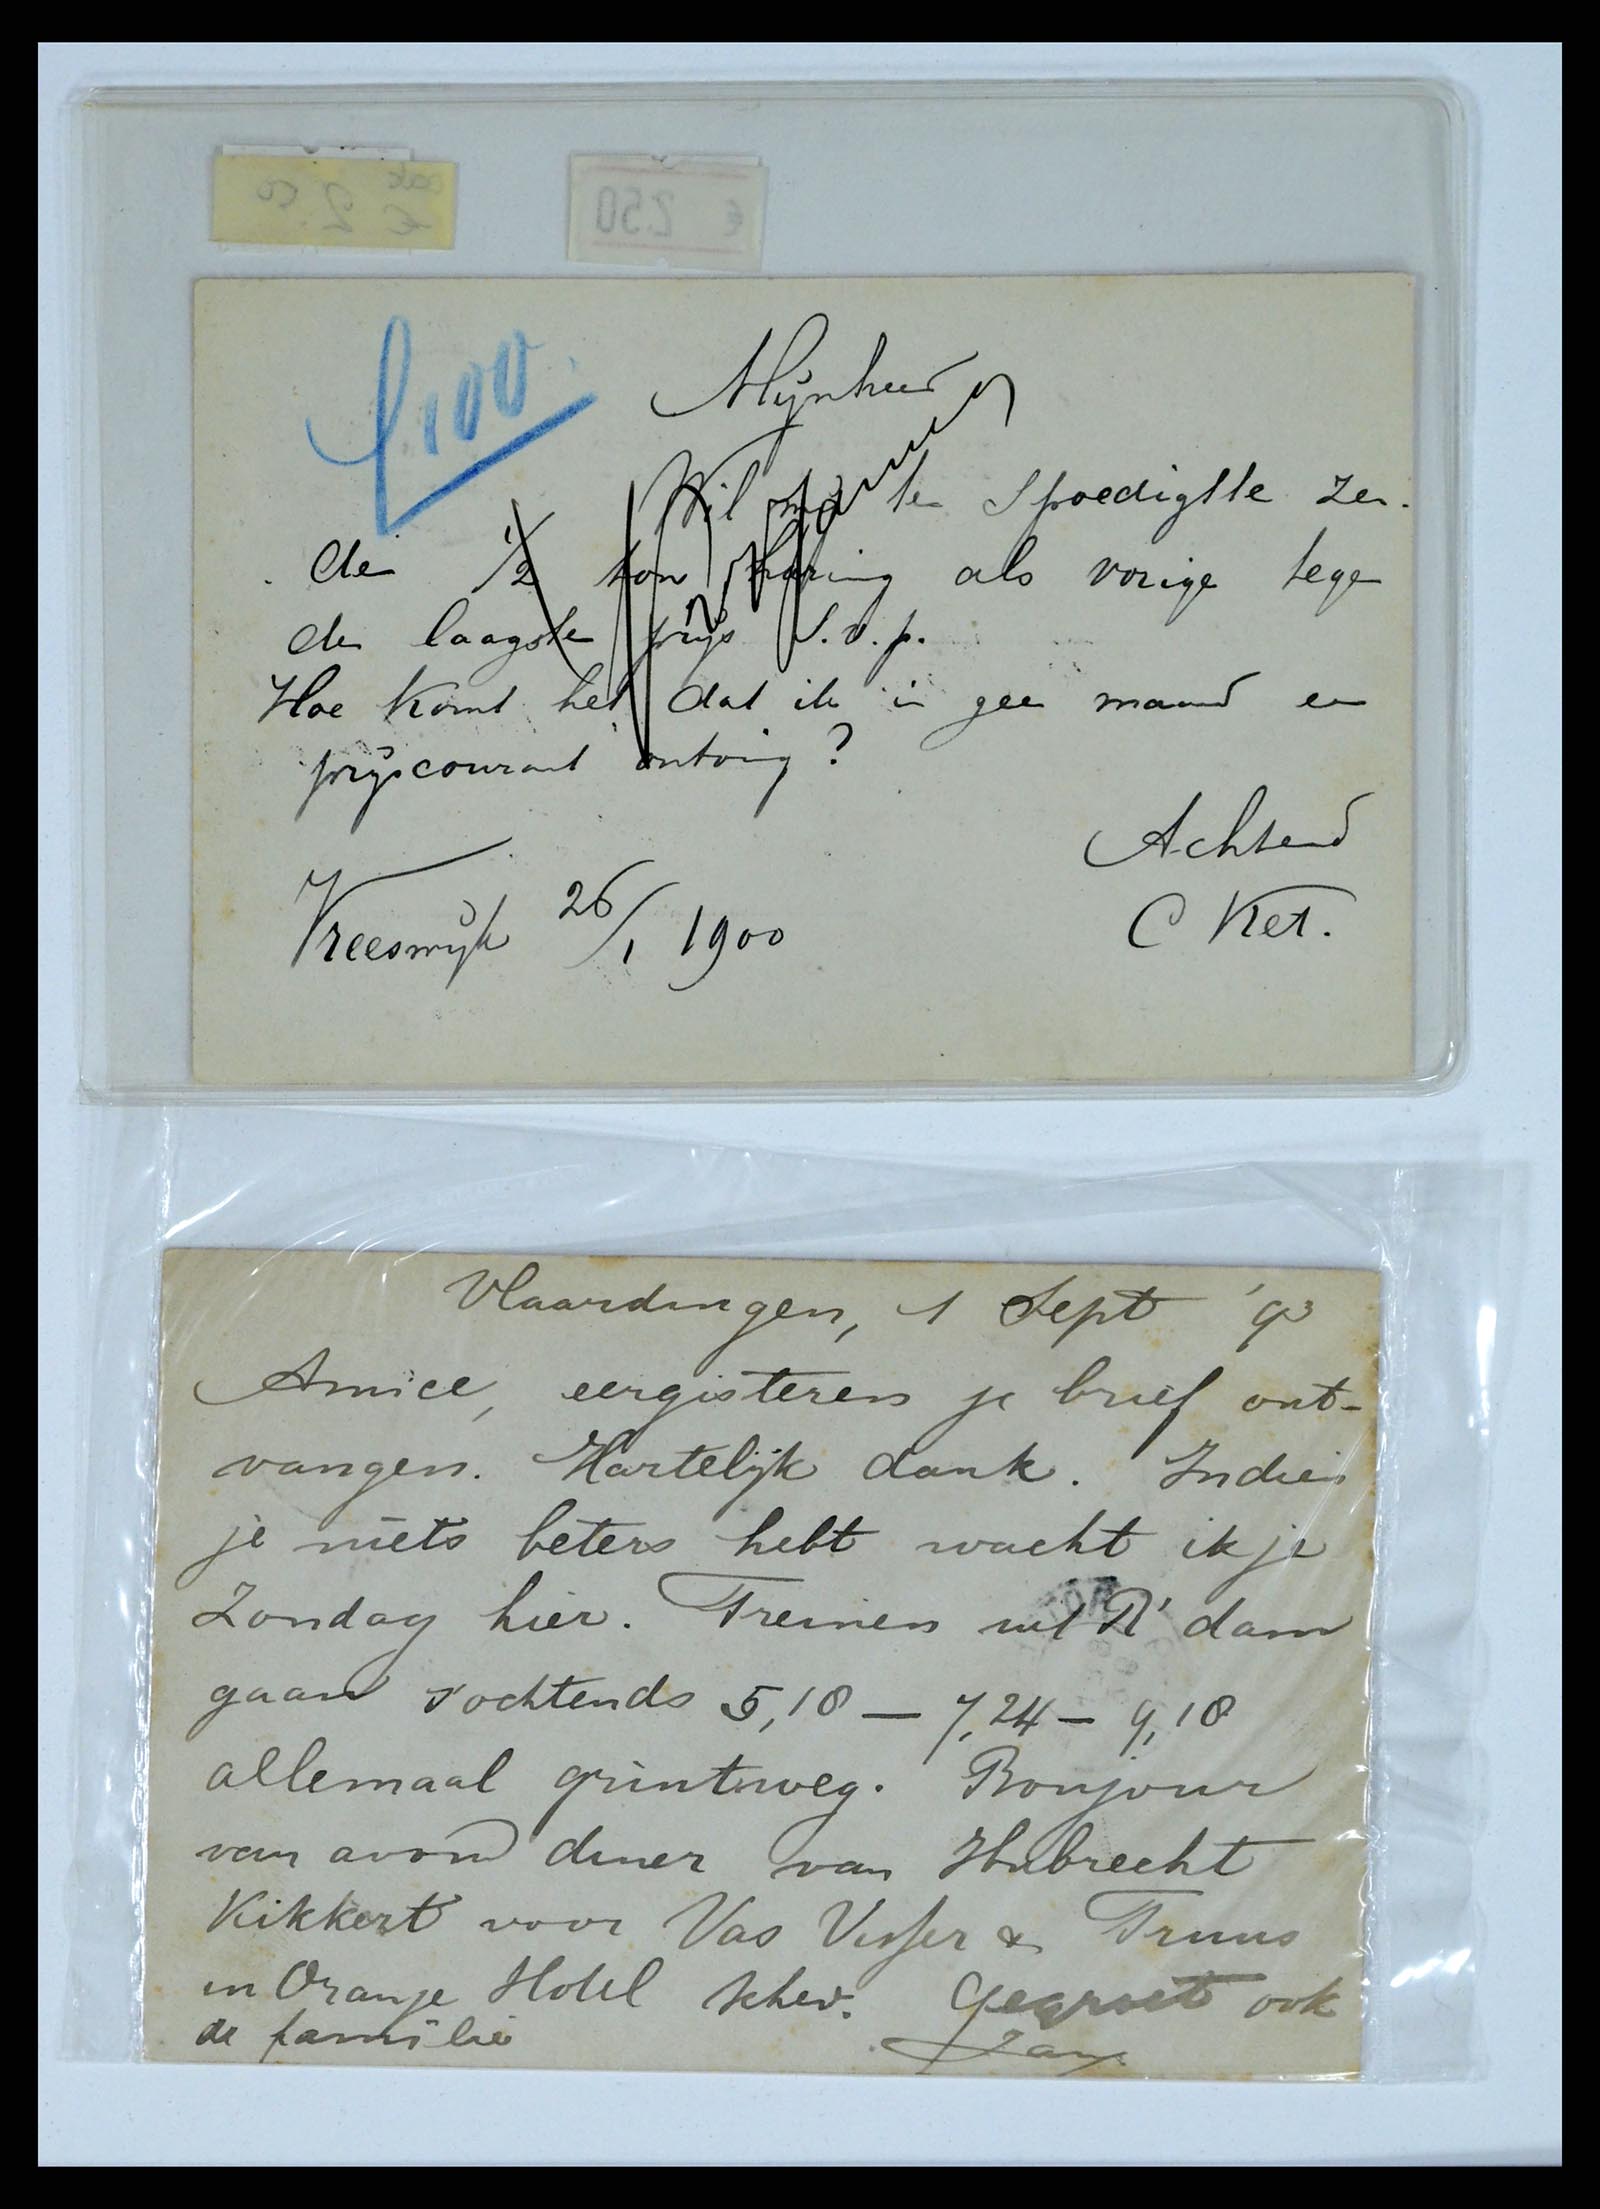 € 2.50
€ 250
f100.
Mijnheer
Wil me ten Spoedigste zen.
den 1/2 ton Haring als vorige tegen
den laagste prijs S.v.p.
Hoe komt het dat ik in geen maand een
prijscourant ontving?
Achtend
C Ket.
Vreeswijk 26/1 1900
Vlaardingen, 1 Sept '93
Amice, eergisteren je brief ont-
vangen. Hartelijk dank. Indien
je niets beters hebt wacht ik je
Zondag hier. Treinen uit R'dam
gaan 's ochtends 5,18 — 7,24 — 9,18
allemaal grintweg. Bonjour
van avond diner van Hubrecht
Kikkert voor Vas Visser & Truus
in Oranje Hotel Schev. Gegroet ook
de familie